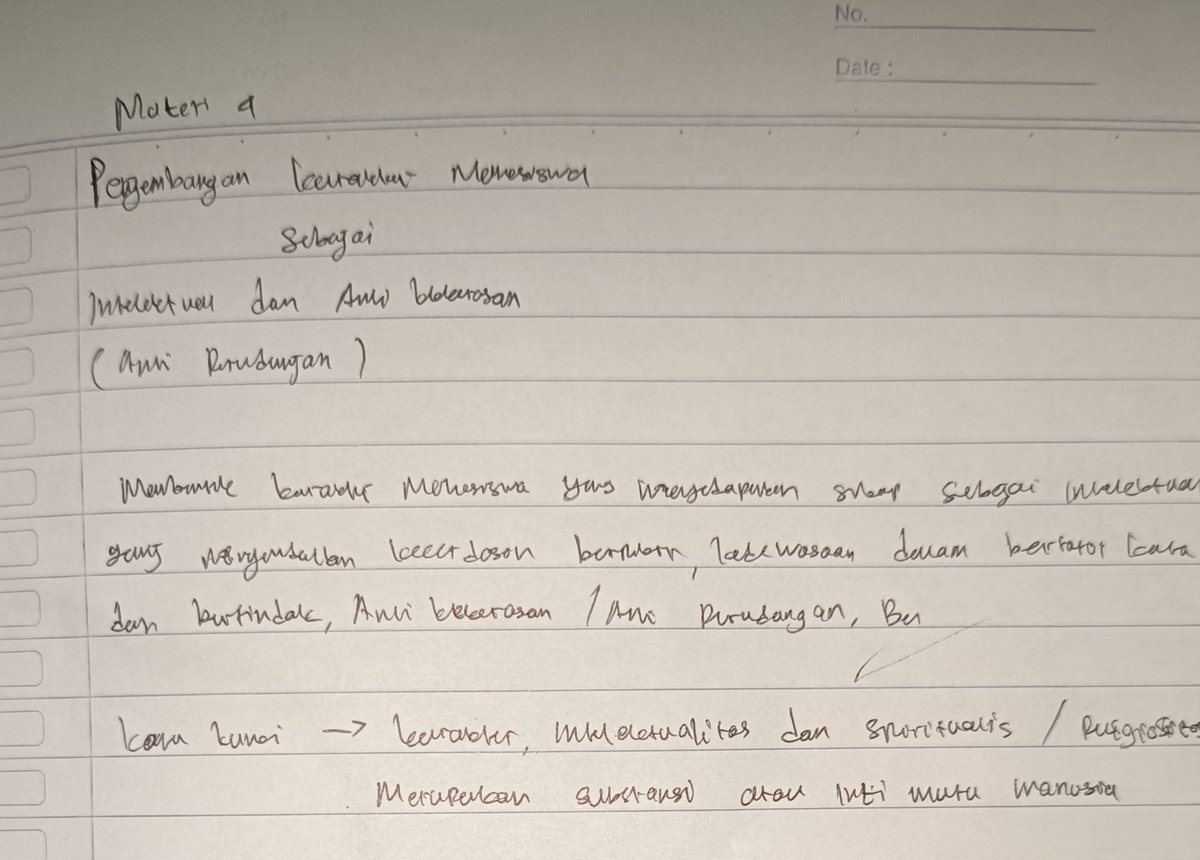 No.
Date :
Materi 4
Pengembangan karakter Mahasiswa
Sebagai
Intelektual dan Anti kekerasan
(Anti Perundungan)
Membentuk karakter Mahasiswa yang sikap sebagai intelektual
yang mengandalkan kecerdasan berpikir, kedewasaan dalam bertutur kata
dan bertindak, Anti kekerasan / Anti Perundangan, Ber
kata kunci → karakter, intelektualitas dan spiritualis /
Merupakan substansi atau inti mutu manusia